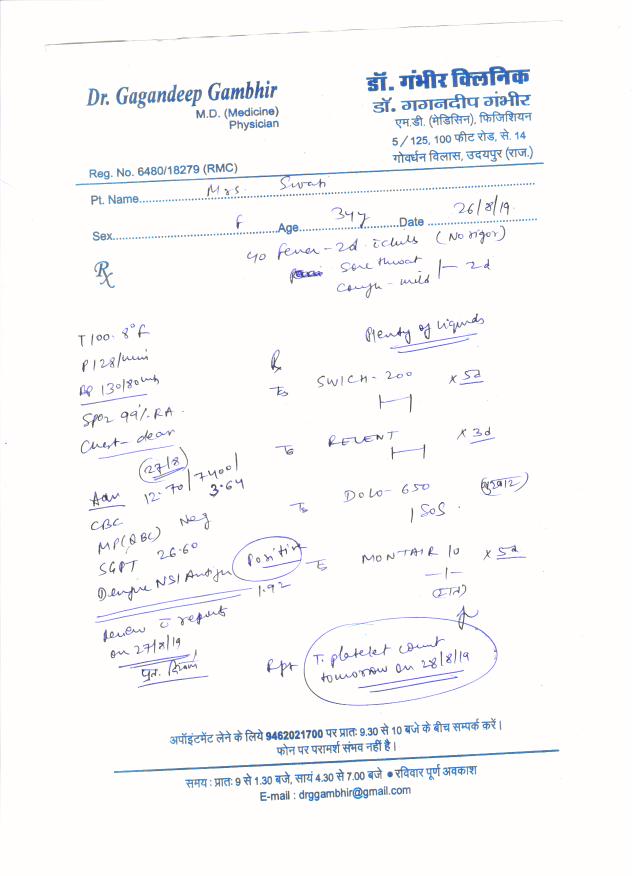 Dr. Gagandeep Gambhir
M.D. (Medicine)
Physician
Reg. No. 6480/18279 (RMC)
डॉ. गंभीर क्लिनिक
डॉ. गगनदीप गंभीर
एम.डी. (मेडिसिन), फिजिशियन
5/125, 100 फीट रोड, से. 14
गोवर्धन विलास, उदयपुर (राज.)
Pt. Name Mrs. Swati
Sex f Age 34y Date 26/8/19
Rx
fever - 2d chills (No rigor)
Sore throat
Cough - mild 2d
T 100.8°F
P 128/min
BP 130/80
SpO2 99% RA.
Chest - clear
Plenty of liquids
Rx
SWICH - 200 x 5d
RELENT x 3d
DOLO - 650 (बुखार)
1 SOS
MONTAIR 10 x 5d
(रात)
27/8
Adv 12.70/7400/
3.64
CBC
MP(QBC) Neg
SGPT 26.60
Dengue NS1 Antigen Positive
1.92
Review c reports
on 27/8/19
Rpt T. platelet count
tomorrow on 28/8/19
अपॉइंटमेंट लेने के लिये 9462021700 पर प्रातः 9.30 से 10 बजे के बीच सम्पर्क करें।
फोन पर परामर्श संभव नहीं है।
समय : प्रातः 9 से 1.30 बजे, सायं 4.30 से 7.00 बजे ● रविवार पूर्ण अवकाश
E-mail : drggambhir@gmail.com